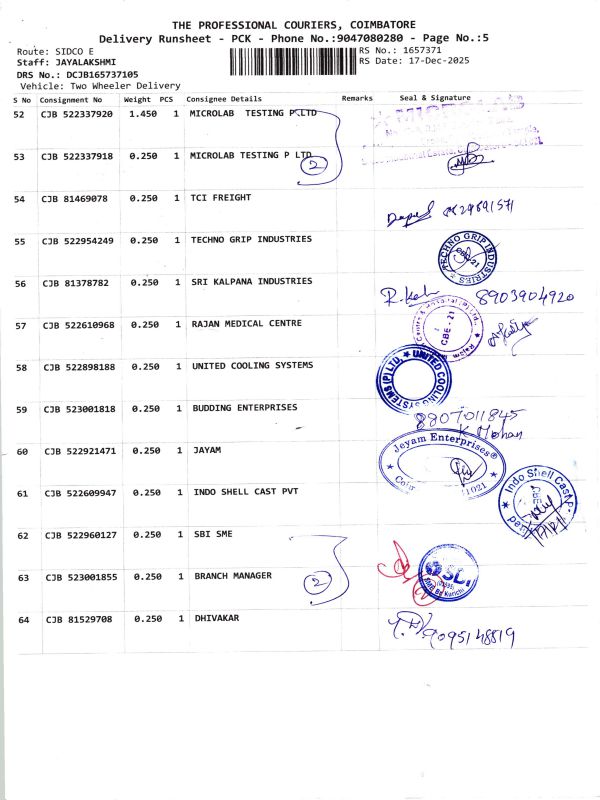 THE PROFESSIONAL COURIERS, COIMBATORE
Delivery Runsheet - PCK - Phone No.:9047080280 - Page No.:5
Route: SIDCO E RS No.: 1657371
Staff: JAYALAKSHMI RS Date: 17-Dec-2025
DRS No.: DCJB165737105
Vehicle: Two Wheeler Delivery
S No Consignment No Weight PCS Consignee Details Remarks Seal & Signature
52 CJB 522337920 1.450 1 MICROLAB TESTING P LTD
53 CJB 522337918 0.250 1 MICROLAB TESTING P LTD 2
54 CJB 81469078 0.250 1 TCI FREIGHT
55 CJB 522954249 0.250 1 TECHNO GRIP INDUSTRIES TECHNO GRIP INDUSTRIES
56 CJB 81378782 0.250 1 SRI KALPANA INDUSTRIES 8903904920
57 CJB 522610968 0.250 1 RAJAN MEDICAL CENTRE CBE - 21
58 CJB 522898188 0.250 1 UNITED COOLING SYSTEMS UNITED COOLING SYSTEMS (P) LTD.
59 CJB 523001818 0.250 1 BUDDING ENTERPRISES 8807011845
K Mohan
60 CJB 522921471 0.250 1 JAYAM Jeyam Enterprises®
61 CJB 522609947 0.250 1 INDO SHELL CAST PVT Indo Shell Cast P
62 CJB 522960127 0.250 1 SBI SME
63 CJB 523001855 0.250 1 BRANCH MANAGER 2
64 CJB 81529708 0.250 1 DHIVAKAR 9095148819